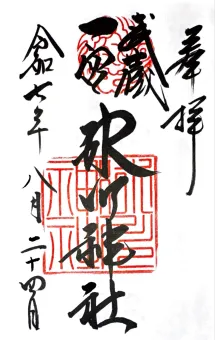 奉拝
武蔵
一宮
氷川神社
令和七年
八月二十四日